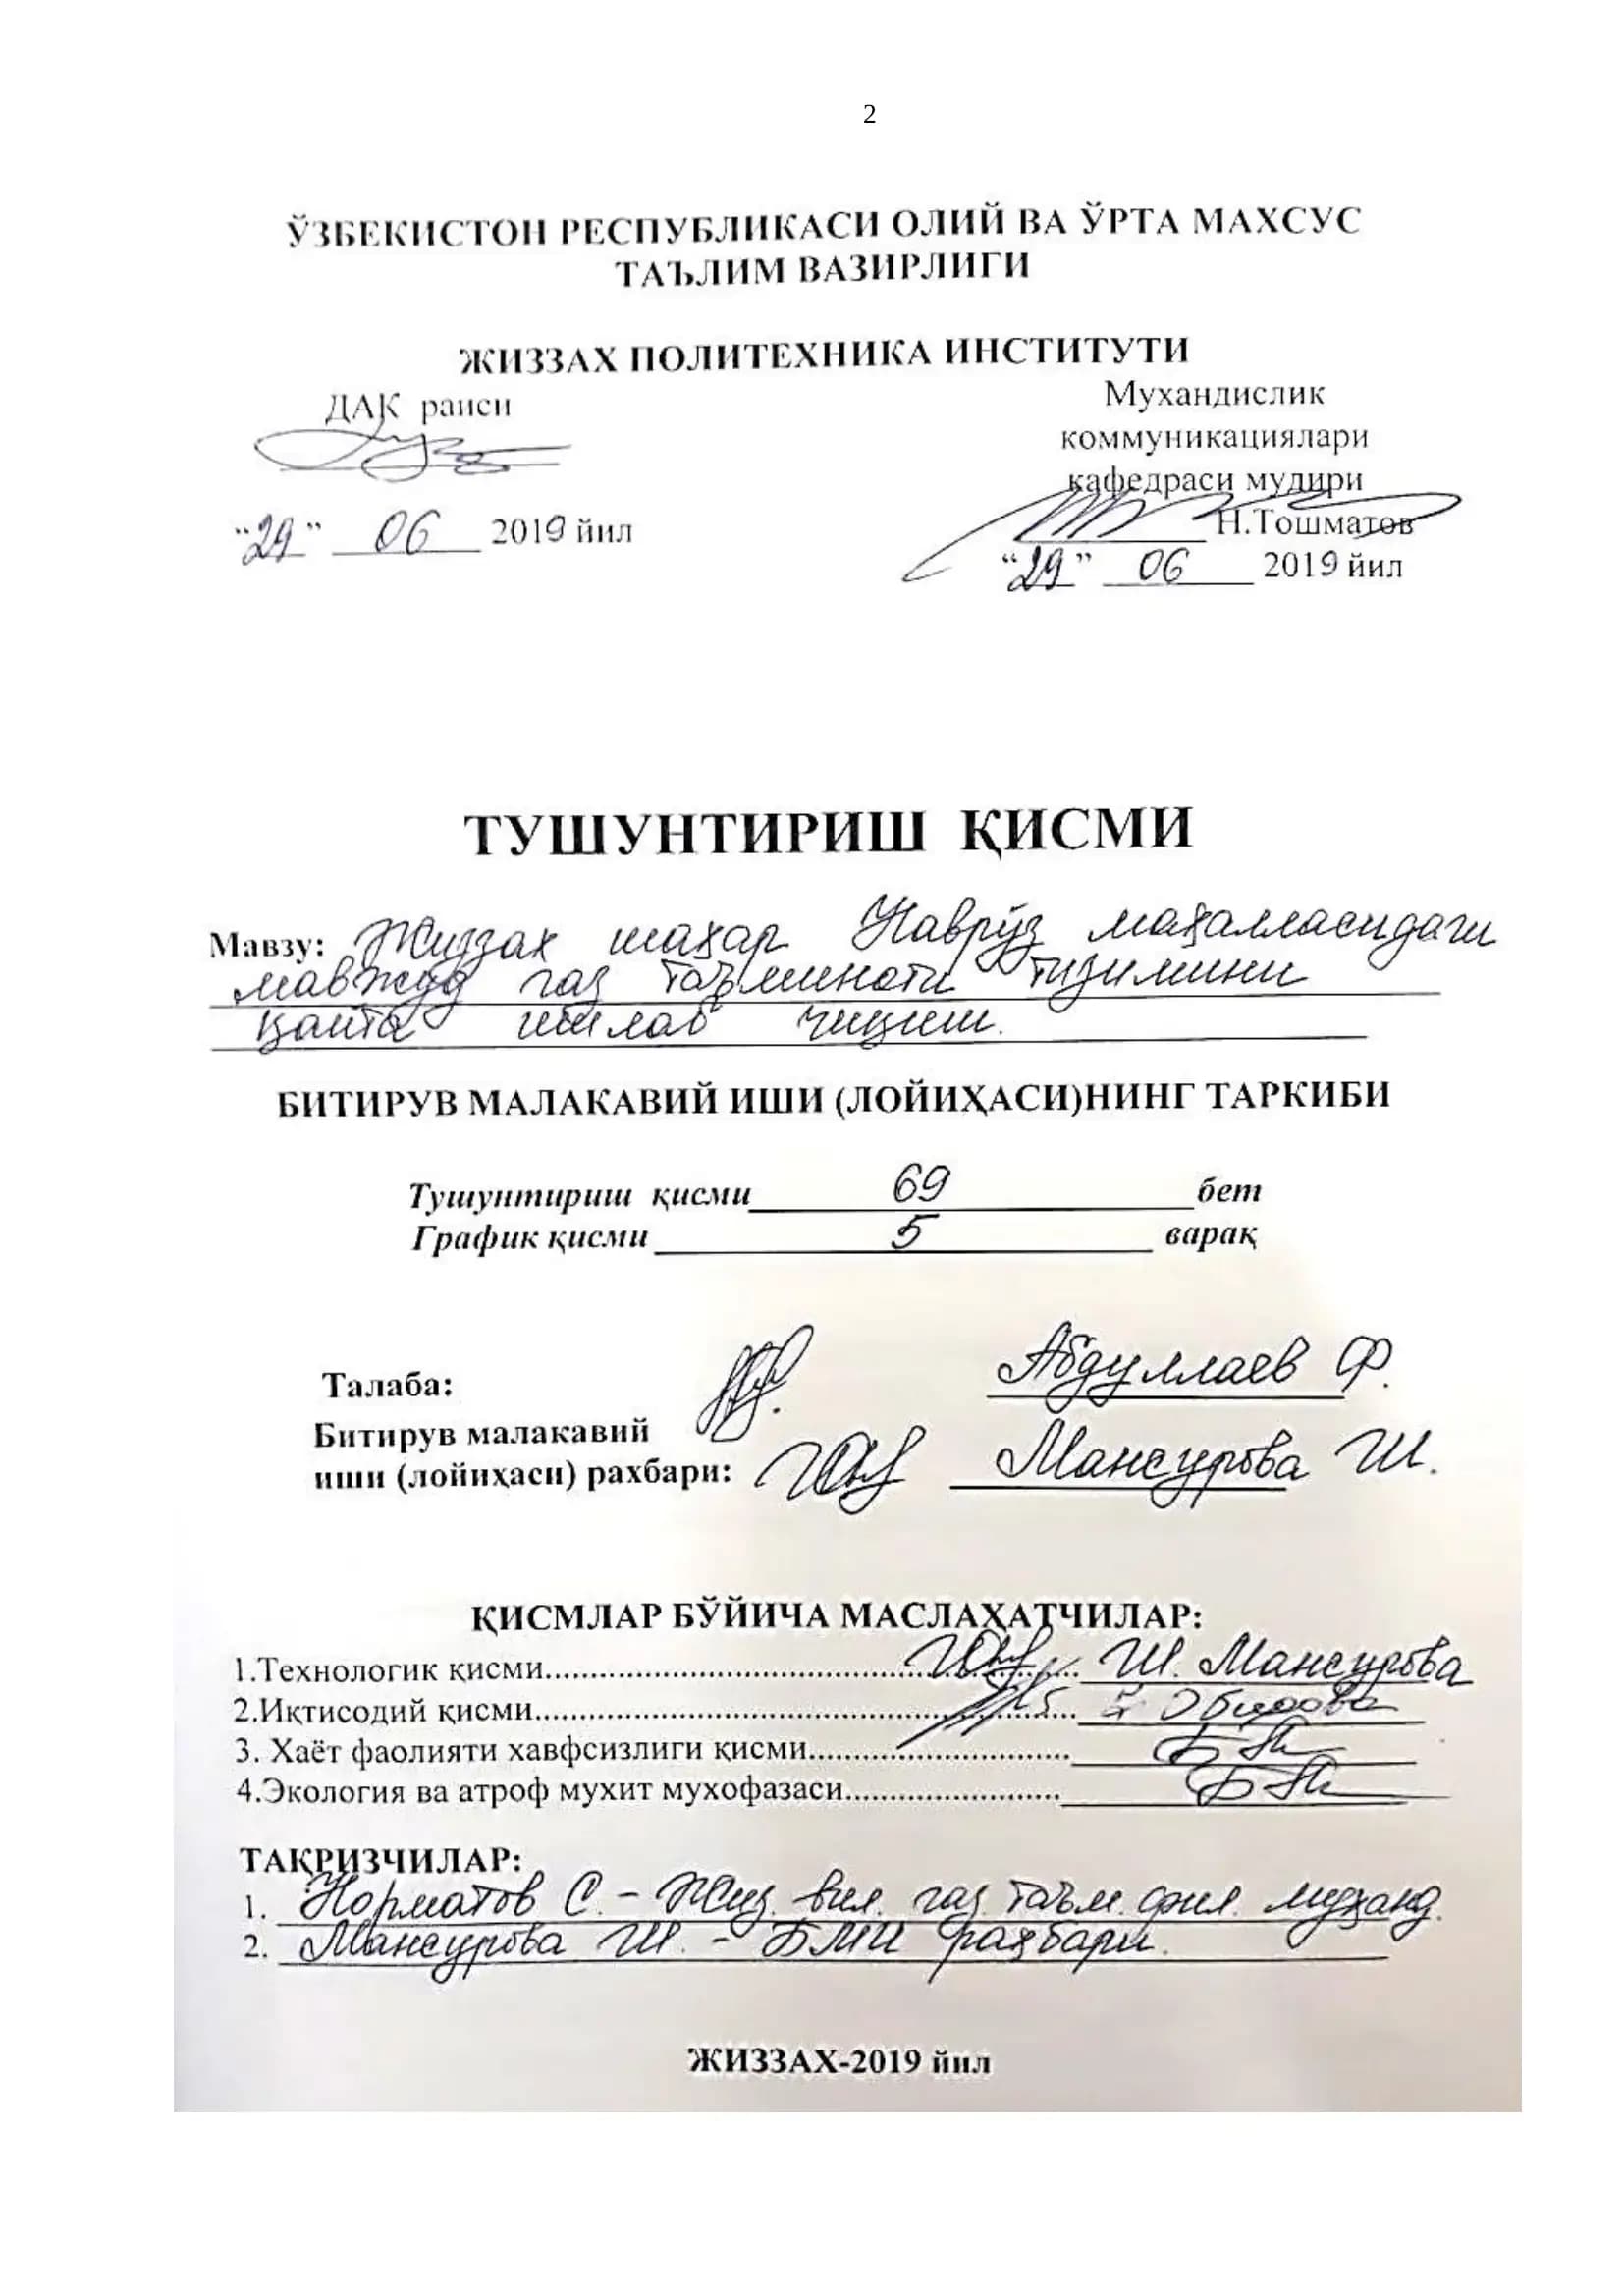 2
ЎЗБЕКИСТОН РЕСПУБЛИКАСИ ОЛИЙ ВА ЎРТА МАХСУС
ТАЪЛИМ ВАЗИРЛИГИ
ЖИЗЗАХ ПОЛИТЕХНИКА ИНСТИТУТИ
ДАК раиси
Мухандислик
коммуникациялари
кафедраси мудири
Н.Тошматов
“29” 06 2019 йил
“29” 06 2019 йил
ТУШУНТИРИШ ҚИСМИ
Мавзу: Жиззах шаҳар Наврўз маҳалласидаги
мавжуд газ таъминоти тизимини
қайта ишлаб чиқиш.
БИТИРУВ МАЛАКАВИЙ ИШИ (ЛОЙИҲАСИ)НИНГ ТАРКИБИ
Тушунтириш қисми 69 бет
График қисми 5 варақ
Талаба: Абдуллаев Ф.
Битирув малакавий
иши (лойиҳаси) рахбари: Мансурова Ш.
ҚИСМЛАР БЎЙИЧА МАСЛАҲАТЧИЛАР:
1.Технологик қисми.......... Ш. Мансурова
2.Иқтисодий қисми.......... Обидова
3. Хаёт фаолияти хавфсизлиги қисми..........
4.Экология ва атроф мухит мухофазаси..........
ТАҚРИЗЧИЛАР:
1. Норматов С. - Жиз. вил. газ. таъм. фил. муҳанд.
2. Мансурова Ш. - БМИ раҳбари.
ЖИЗЗАХ-2019 йил